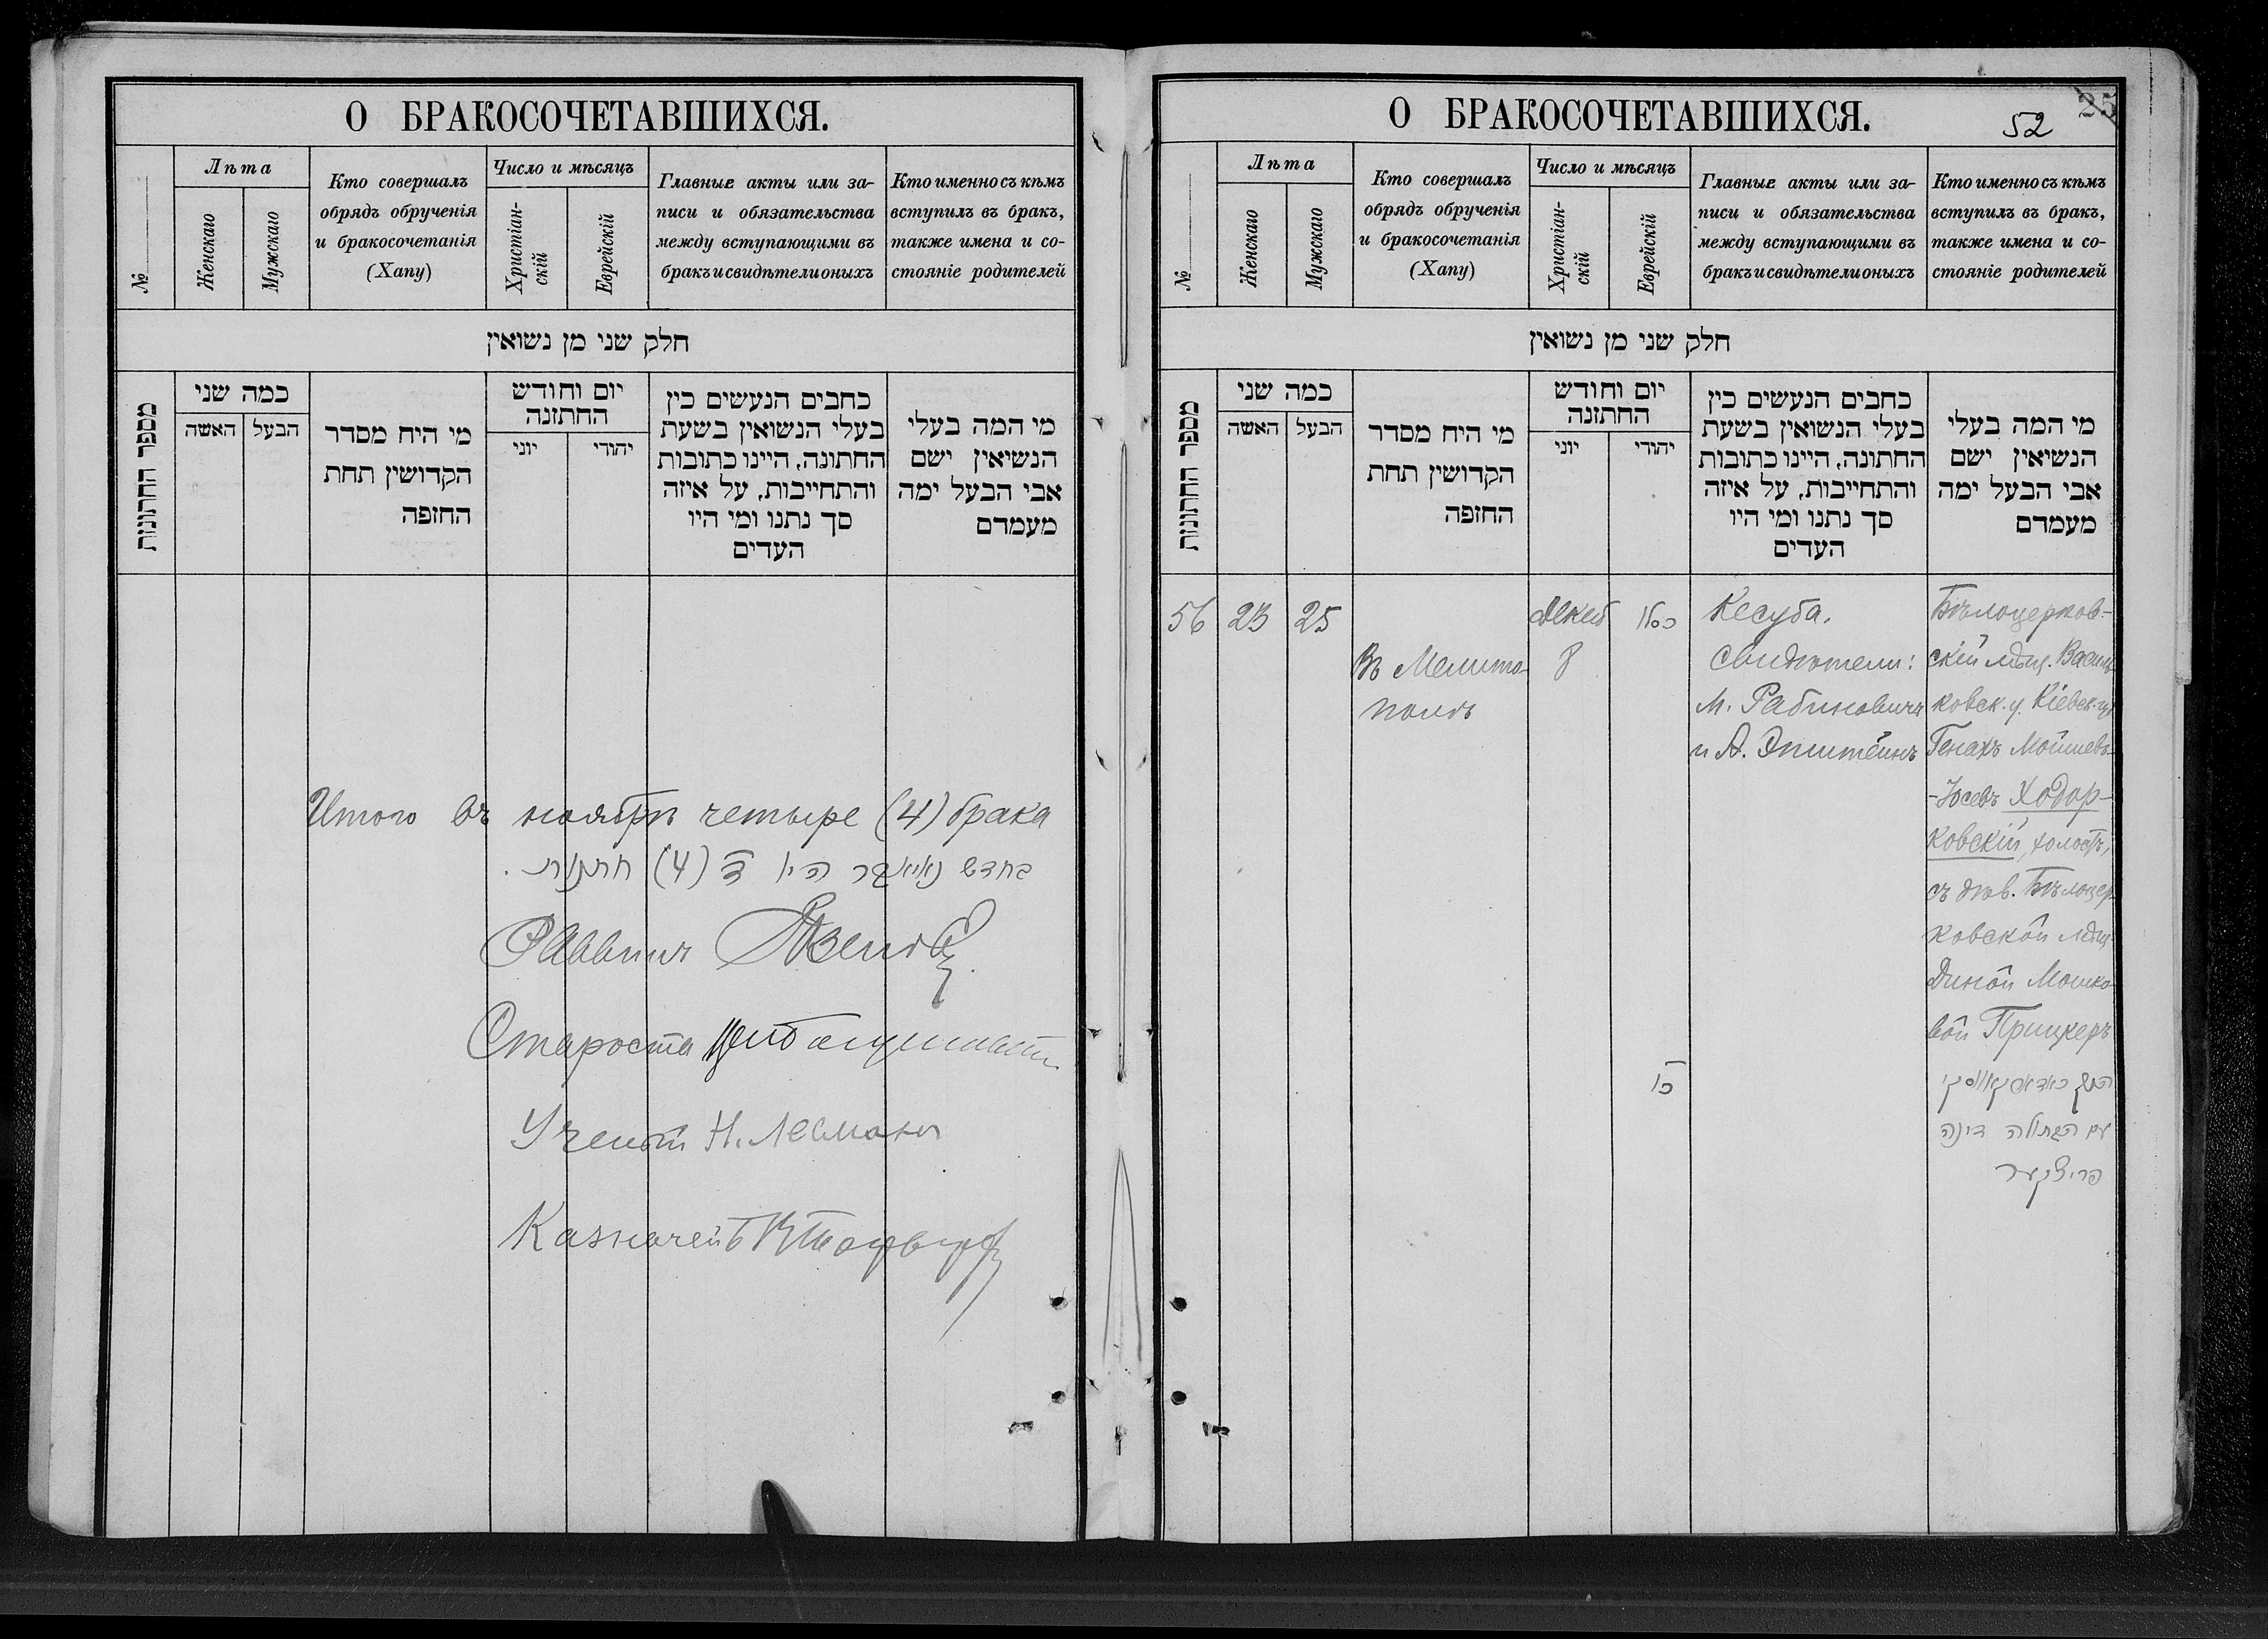 О БРАКОСОЧЕТАВШИХСЯ.
№
Лѣта
Женскаго
Мужскаго
Кто совершалъ
обрядъ обрученія
и бракосочетанія
(Хапу)
Число и мѣсяцъ
Христіан-
скій
Еврейскій
Главные акты или за-
писи и обязательства
между вступающими въ
бракъ и свидѣтели оныхъ
Кто именно съ кѣмъ
вступилъ въ бракъ,
также имена и со-
стояніе родителей
חלק שני מן נשואין
מספר החתונות
כמה שני
האשה
הבעל
מי היח מסדר
הקדושין תחת
החופה
יום וחודש
החתונה
יוני
יהודי
כחבים הנעשים כין
בעלי הנשואין בשעת
החתונה, היינו כתובות
והתחייבות, על איזה
סך נתנו ומי היו
העדים
מי המה בעלי
הנשיאין ישם
אבי הבעל ימה
מעמדם
Итого въ ноябрѣ четыре (4) брака
בחדש נאיאבר היו ד (4) חתונות.
Раввинъ
Староста
Ученый Н. Лейманъ
Казначей
О БРАКОСОЧЕТАВШИХСЯ.
52
25
№
Лѣта
Женскаго
Мужскаго
Кто совершалъ
обрядъ обрученія
и бракосочетанія
(Хапу)
Число и мѣсяцъ
Христіан-
скій
Еврейскій
Главные акты или за-
писи и обязательства
между вступающими въ
бракъ и свидѣтели оныхъ
Кто именно съ кѣмъ
вступилъ въ бракъ,
также имена и со-
стояніе родителей
חלק שני מן נשואין
מספר החתונות
כמה שני
האשה
הבעל
מי היח מסדר
הקדושין תחת
החופה
יום וחודש
החתונה
יוני
יהודי
כחבים הנעשים כין
בעלי הנשואין בשעת
החתונה, היינו כתובות
והתחייבות, על איזה
סך נתנו ומי היו
העדים
מי המה בעלי
הנשיאין ישם
אבי הבעל ימה
מעמדם
56
23
25
Въ Мелито-
полѣ
Декаб
8
כסלו
טו
Кесуба.
Свидѣтели:
М. Рабиновичъ
и А. Эпштейнъ
Бѣлоцерков-
скій мѣщ. Василь-
ковск. у. Кіевск. губ
Генахъ Мойшевъ-
-Іосевъ Ходор-
ковскій, холостъ,
съ дѣв. Бѣлоцер-
ковской мѣщ.
Диной Мошко-
вой Прицкеръ
עם הבתולה דינה
פריצקער